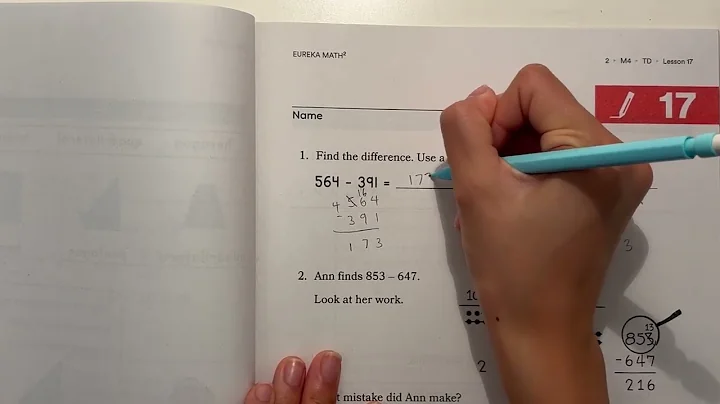 EUREKA MATH²
2 ▪ M4 ▪ TD ▪ Lesson 17
17
Name
1. Find the difference. Use a
564 – 391 = 17
16
4 564
-391
173
3
2. Ann finds 853 – 647.
Look at her work.
10
13
853
-647
216
2
mistake did Ann make?